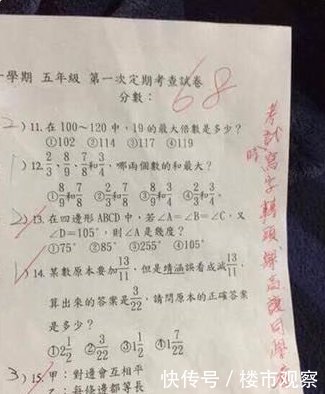 一學期 五年級 第一次定期考查試卷
分數：68
2）11.在 100～120 中，19 的最大倍數是多少？
①102 ②114 ③117 ④119
1）12. 2/3、8/9、7/8和3/4，哪兩個數的和最大？
①8/9和7/8 ②2/3和7/8 ③8/9和3/4 ④2/3和3/4。
13.在四邊形 ABCD 中，若∠A=∠B=∠C，又
∠D=105°，則∠A 是幾度？
①75° ②85° ③255° ④105°
14.某數原本要加13/11，但是靖涵誤看成減13/11，
算出來的答案是3/22，請問原本的正確答案
是多少？
①2 1/2 ②3/22 ③1 1/2 ④1 7/22
3）15.甲：對邊會互相平
乙：每條邊都等長
考試時寫字轉頭
快传号/楼市观察